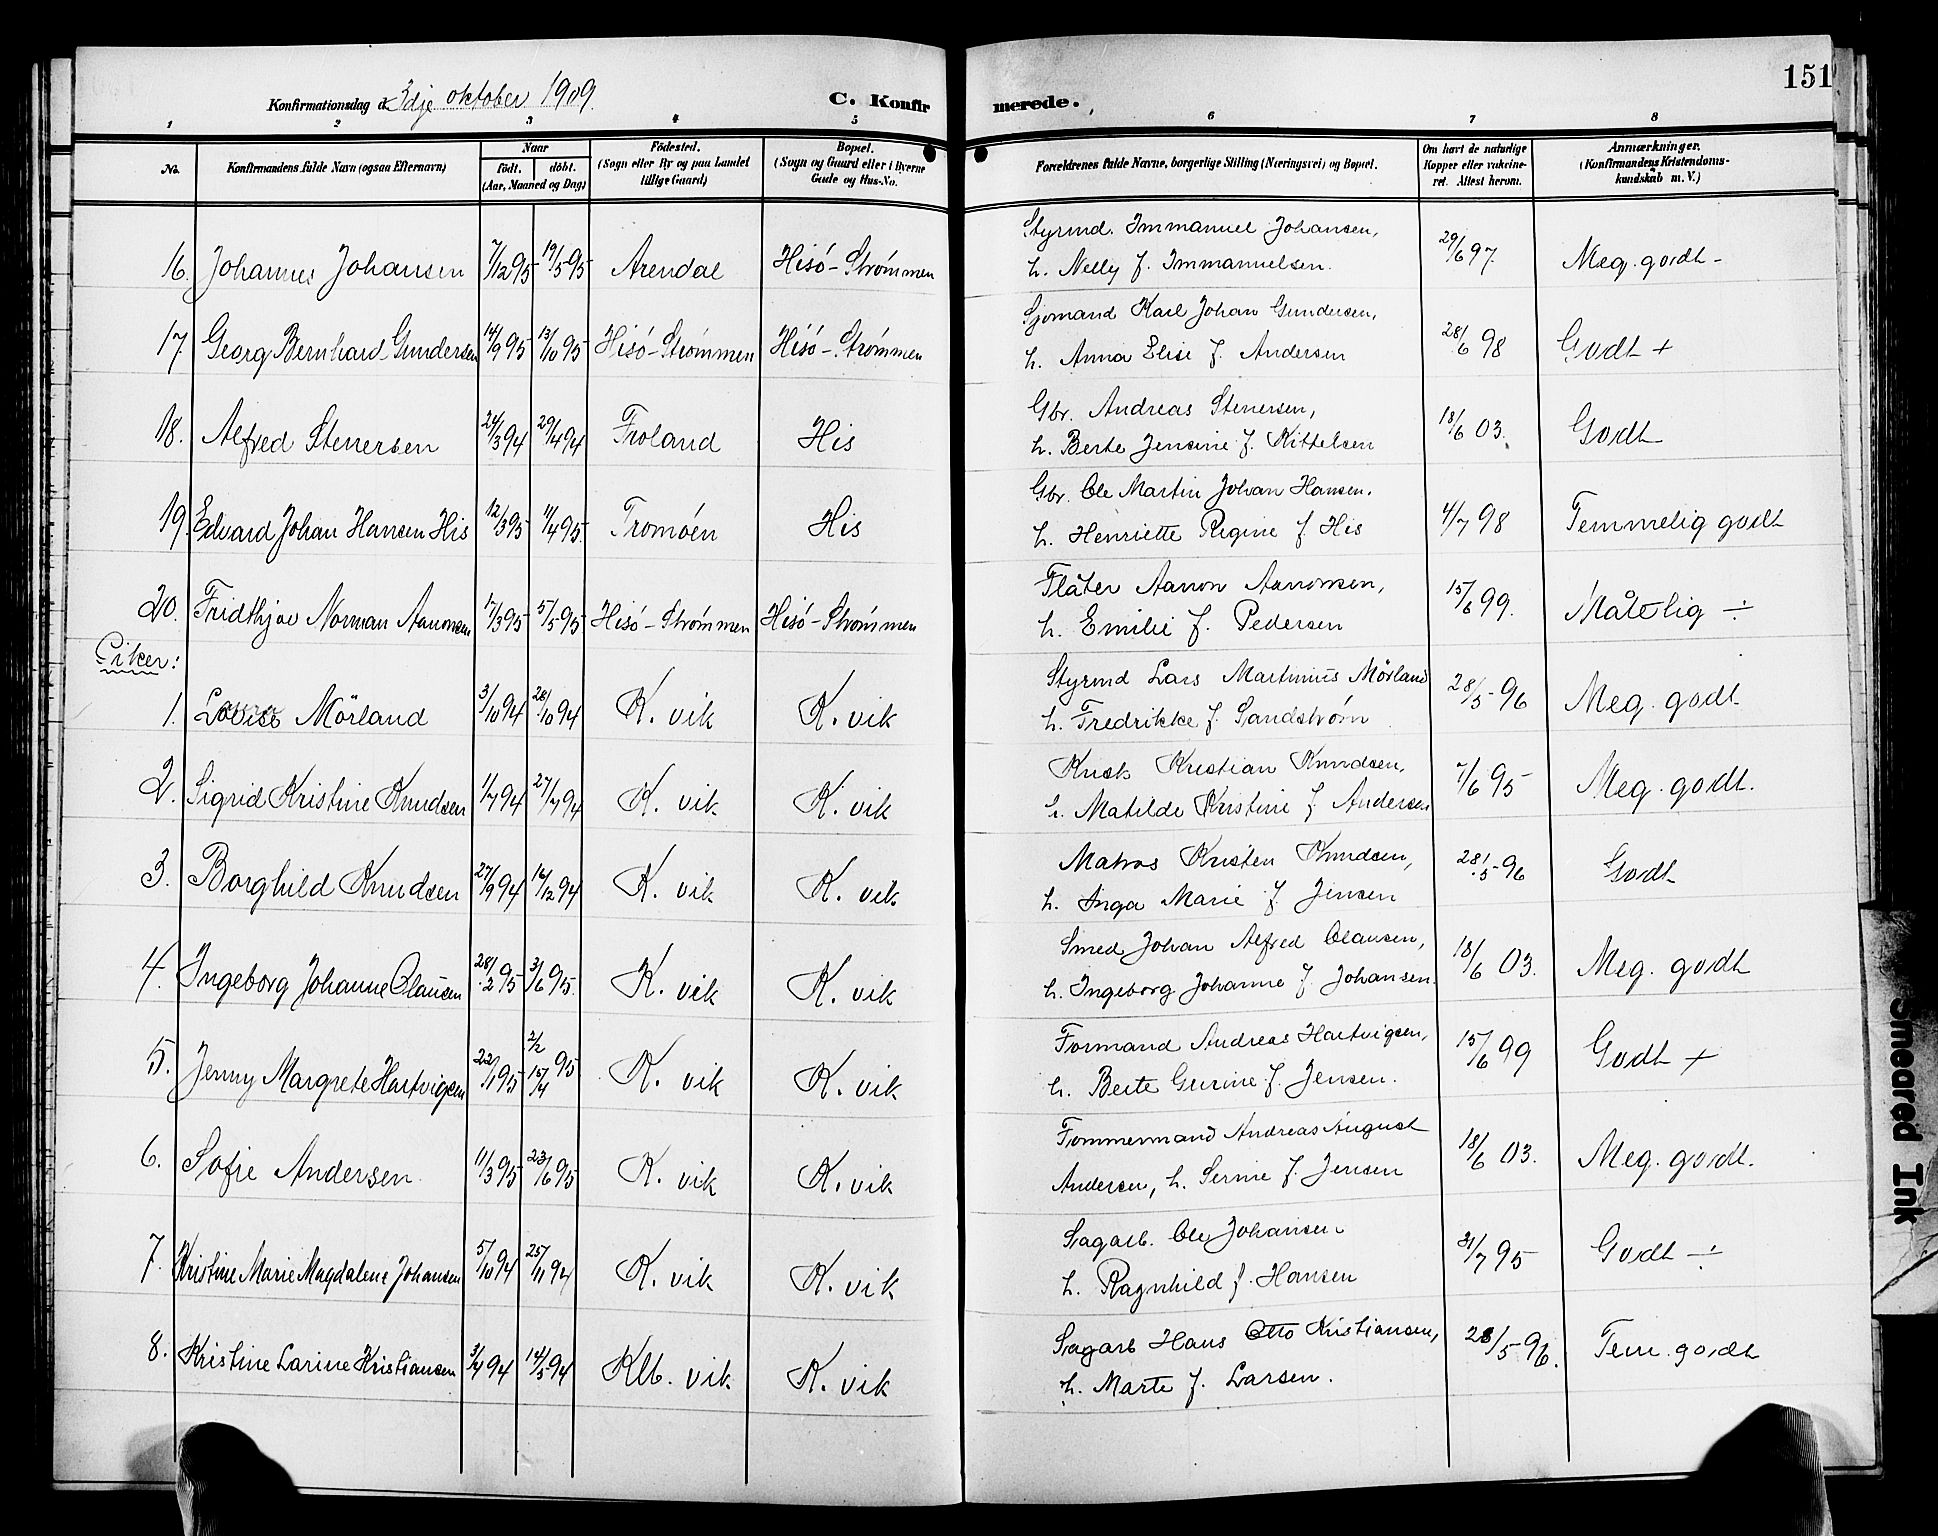 151
Konfirmationsdag d. 3dje oktober 1909.
C. Konfir
merede.
1 2 3 4 5 6 7 8
No.
Konfirmandens fulde Navn (ogsaa Efternavn)
Naar
födt. döbt.
(Aar, Maaned og Dag)
Födested.
(Sogn eller By og paa Landet
tillige Gaard)
Bopæl.
(Sogn og Gaard eller i Byerne
Gade og Hus-No.
Forældrenes fulde Navne, borgerlige Stilling (Næringsvei) og Bopæl.
Om havt de naturlige
Kopper eller vakcine-
ret. Attest herom.
Anmærkninger.
(Konfirmandens Kristendoms-
kundskab m. V.)
16. Johannes Johansen 7/12 95 19/5 95 Arendal Hisö-Strømmen Styrmd. Immanuel Johansen, 29/6 97. Meg. godt -
h. Nelly f. Immanuelsen.
17. Georg Bernhard Gundersen 14/9 95 13/10 95 Hisö-Strømmen Hisö-Strømmen Sjømand Karl Johan Gundersen, 28/6 98 Godt +
h. Anna Elise f. Andersen
18. Alfred Stenersen 24/3 94 29/4 94 Froland His Gbr. Andreas Stenersen, 18/6 03. Godt
h. Berte Jensine f. Kittelsen
19. Edvard Johan Hansen His 12/3 95 11/4 95. Tromöen His Gbr. Ole Martin Johan Hansen. 4/7 98 Temmelig godt
h. Henriette Regine f. His
20. Fridthjov Norman Aanonsen 17/3 95 5/5 95 Hisö-Strømmen Hisö-Strømmen Flåter Aanon Aanonsen, 15/6 99. Måtelig ÷
h. Emilie f. Pedersen
Piker:
1. Laura Mörland 3/10 94 28/10 94 K. vik K. vik Styrmd Lars Martinius Mörland 28/5-96 Meg. godt
h. Fredrikke f. Sandstrøm
2. Sigrid Kristine Knudsen 1/7 94 27/7 94 K. vik K. vik Kusk Kristian Knudsen, 7/6 95 Meg. godt.
h. Matilde Kristine f Andersen
3. Borghild Knudsen 27/9 94 16/12 94 K. vik K. vik Matros Kristen Knudsen, 28/5-96 Godt
h. Inga Marie f. Jensen
4. Ingeborg Johanne Olausen 28/2 95 3/6 95. K. vik K. vik Smed Johan Alfred Olausen, 18/6 03. Meg. godt
h. Ingeborg Johanne f. Johansen.
5. Jenny Margrete Hartvigsen 22/1 95 2/2 15/4 95 K. vik K. vik Formand Andreas Hartvigsen, 15/6 99 Godt +
h. Berte Gurine f. Jensen.
6. Sofie Andersen 11/3 95 23/6 95 K. vik K. vik Tømmermand Andreas August 18/6 03. Meg. godt.
Andersen, h. Serine f. Jensen
7. Kristine Marie Magdalene Johansen 5/10 94 25/11 94 K. vik K. vik Sagarb. Ole Johansen 31/7 95 Godt ÷
h. Ragnhild f. Hansen
8. Kristine Larine Kristiansen 3/4 94 14/5 94 Klb. vik K. vik Sagarb Hans Otto Kristiansen, 28/5-96. Tem. godt
h. Marte f. Larsen.
Smeared Ink